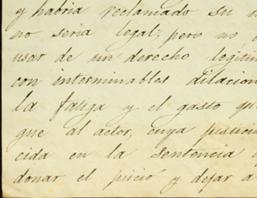 y habria reclamado su
no seria legal; pero no
usar de un derecho legitim
con interminables dilacion
la fatiga y el gasto qu
que al actor, cuya
cida en la sentencia
donar el juicio y dejar a